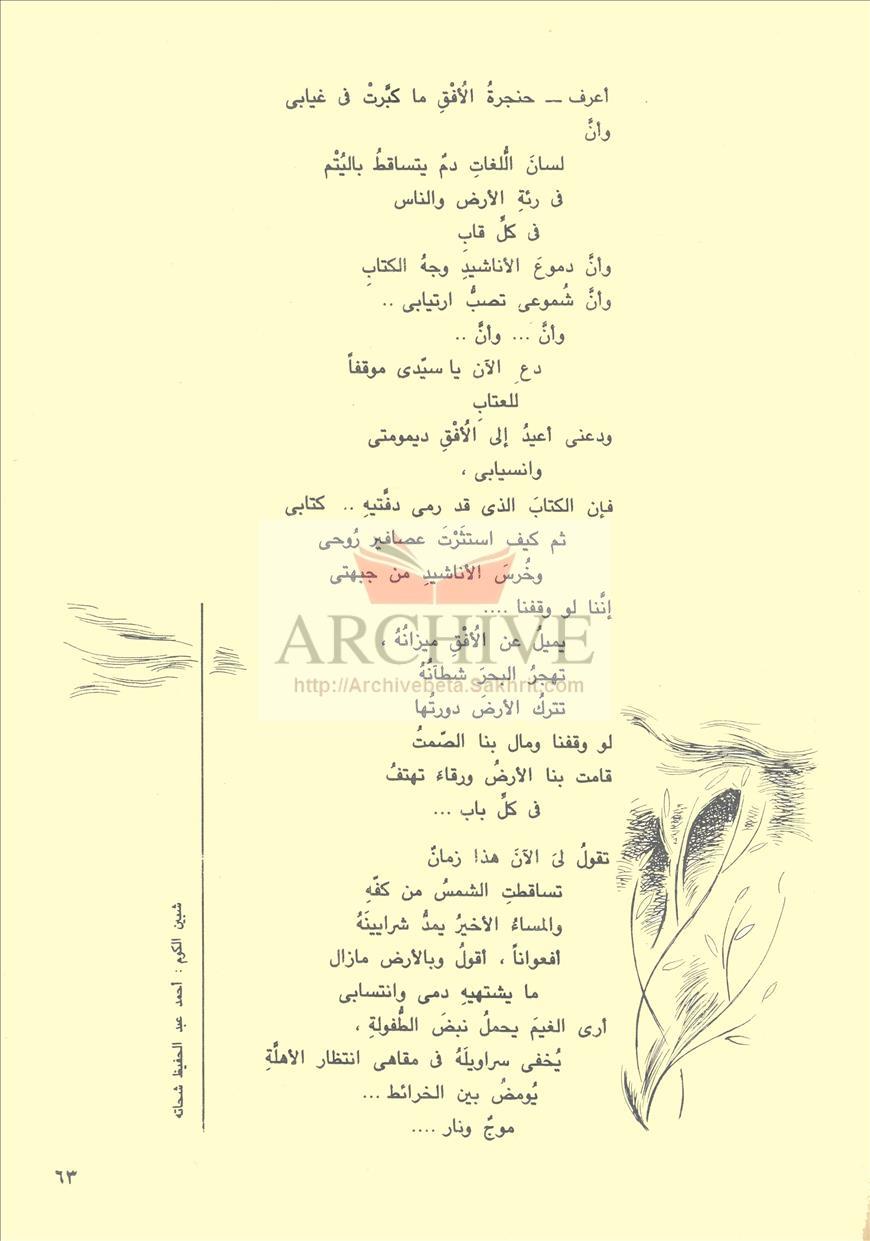 أعرف — حنجرةُ الأُفْقِ ما كبَّرتْ فى غيابى
وأنَّ
لسانَ الُّلغاتِ دمٌ يتساقطُ باليُتْم
فى رئةِ الأرض والناس
فى كلِّ قابِ
وأنَّ دموعَ الأناشيدِ وجهُ الكتابِ
وأنَّ شُموعى تصبُّ ارتيابى ..
وأنَّ ... وأنَّ ..
دعِ الآن يا سيّدى موقفاً
للعتابِ
ودعنى أعيدُ إلى الأُفْقِ ديمومتى
وانسيابى ،
فإن الكتابَ الذى قد رمى دفَّتيهِ .. كتابى
ثم كيف استثَرْتَ عصافير رُوحى
وخُرسَ الأناشيدِ من جبهتى
إنَّنا لو وقفنا ....
يميلُ عن الأُفْقِ ميزانُهُ ،
تهجرُ البحرَ شطآنُهُ
تتركُ الأرضَ دورتُها
لو وقفنا ومال بنا الصّمتُ
قامت بنا الأرضُ ورقاءَ تهتفُ
فى كلِّ باب ...
تقولُ لىَ الآنَ هذا زمانٌ
تساقطتِ الشمسُ من كفّهِ
والمساءُ الأخيرُ يمدُّ شرايينَهُ
أفعواناً ، أقولُ وبالأرض مازال
ما يشتهيهِ دمى وانتسابى
أرى الغيمَ يحملُ نبضَ الطُّفولةِ ،
يُخفى سراويلَهُ فى مقاهى انتظار الأهلَّةِ
يُومضُ بين الخرائط ...
موجٌ ونار ....
شبين الكوم : أحمد عبد الحفيظ شحاته
٦٣
ARCHIVE
http://Archivebeta.Sakhrit.com